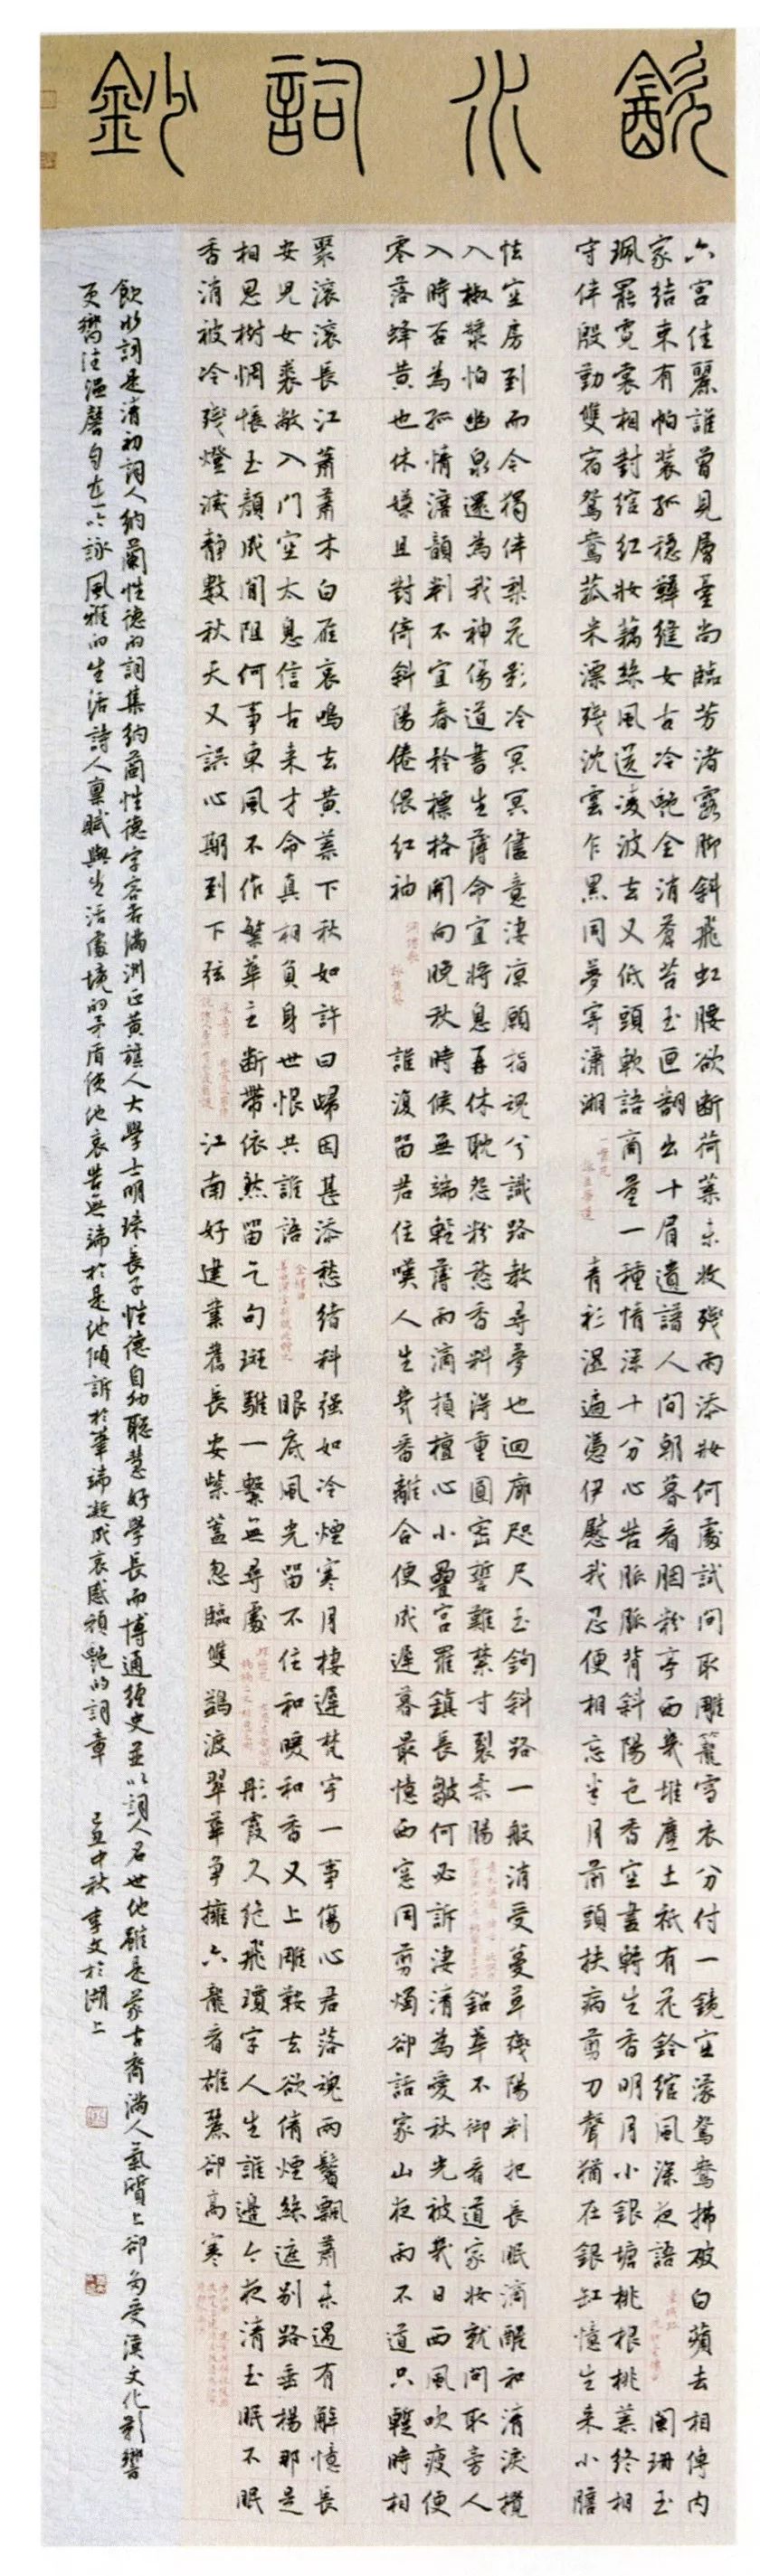 㱃水詞鈔
六宮佳麗誰曾見層臺尚臨芳渚露腳斜飛虹腰欲斷荷葉未收殘雨添妝何處試問取雕籠雪衣分付一鏡空濛鴛鴦拂破白蘋去相傳內
家結束有帕裝孤穩鞾縫女古冷艷全消蒼苔玉匣翻出十眉遺譜人間朝暮看胭粉亭西幾堆塵土祇有花鈴綰風深夜語 闌珊玉
珮罷霓裳相對綰紅妝藕絲風送凌波去又低頭軟語商量一種情深十分心苦脈脈背斜陽色香空盡轉生香明月小銀塘桃根桃葉終相
守伴殷勤雙宿鴛鴦菰米漂殘沈雲乍黑同夢寄瀟湘 青衫濕遍憑伊慰我忍便相忘半月前頭扶病剪刀聲猶在銀缸憶生來小膽
怯空房到而今獨伴梨花影冷冥冥儘意淒涼願指魂兮識路教尋夢也迴廊咫尺玉鉤斜路一般消受蔓草殘陽判把長眠滴醒和清淚攪
入椒漿怕幽泉還為我神傷道書生薄命宜將息再休耽怨粉愁香料得重圓密誓難禁寸裂柔腸 鉛華不御看道家妝就問取旁人
入時否為孤情澹韻判不宜春矜標格開向晚秋時候無端輕薄雨滴損檀心小疊宮羅鎮長皺何必訴淒清為愛秋光被幾日西風吹瘦便
零落蜂黃也休嫌且對倚斜陽倦偎紅袖 誰復留君住嘆人生幾番離合便成遲暮最憶西窓同剪燭卻話家山夜雨不道只暫時相
聚滾滾長江蕭蕭木白雁哀鳴去黃葉下秋如許曰歸因甚添愁緒料強如冷煙寒月棲遲梵宇一事傷心君落魄兩鬢飄蕭未遇有解憶長
安兒女裘敝入門空太息信古來才命真相負身世恨共誰語 眼底風光留不住和暖和香又上雕鞍去欲倩煙絲遮別路垂楊那是
相思樹惆悵玉顏成間阻何事東風不作繁華主斷帶依然留乞句斑騅一繫無尋處 彤霞久絕飛瓊字人生誰邊今夜清玉眠不眠
香消被冷殘燈滅靜數秋天又誤心期到下弦 江南好建業舊長安紫蓋忽臨雙鷁渡翠華爭擁六龍看雄麗卻高寒
飲水詞是清初詞人納蘭性德的詞集納蘭性德字容若滿洲正黃旗人大學士明珠長子性德自幼聰慧好學長而博通經史並以詞人名世他雖是蒙古裔滿人氣質上卻多受漢文化影響
更嚮往溫馨自在吟詠風雅的生活詩人稟賦與生活處境的矛盾使他哀苦無端於是他傾訴於筆端凝成哀感頑艷的詞章 己丑中秋李文於湖上